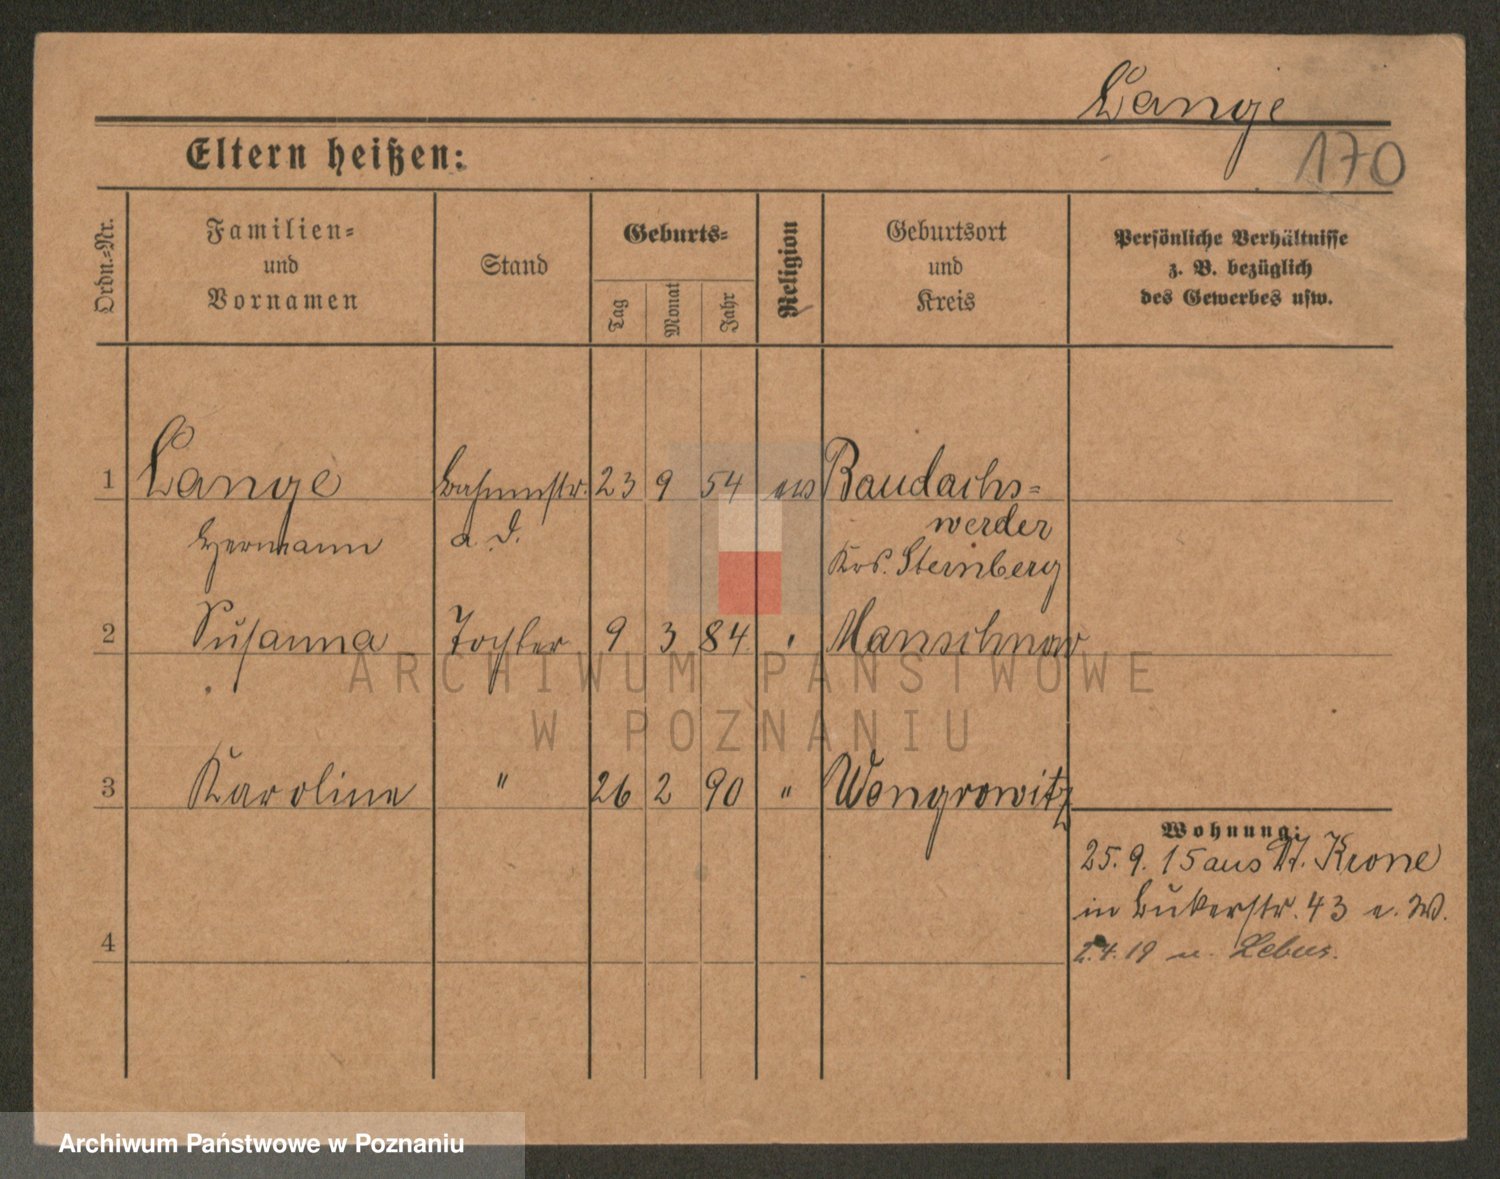 Lange
170
Eltern heißen:
Ordn.-Nr.
Familien-
und
Vornamen
Stand
Geburts-
Tag
Monat
Jahr
Religion
Geburtsort
und
Kreis
Persönliche Verhältnisse
z. B. bezüglich
des Gewerbes usw.
1 Lange 23 9 54 Baudachs-
Hermann a. D. werder
Krs. Sternberg
2 Susanna Tochter 9 3 84 " Manschnow
3 Karoline " 26 2 90 " Wongrowitz
Wohnung:
25. 9. 15 aus Dt. Krone
in Bukerstr. 43 e. W.
4
2.4.19 n. Lebus.
ARCHIWUM PAŃSTWOWE
W POZNANIU
Archiwum Państwowe w Poznaniu